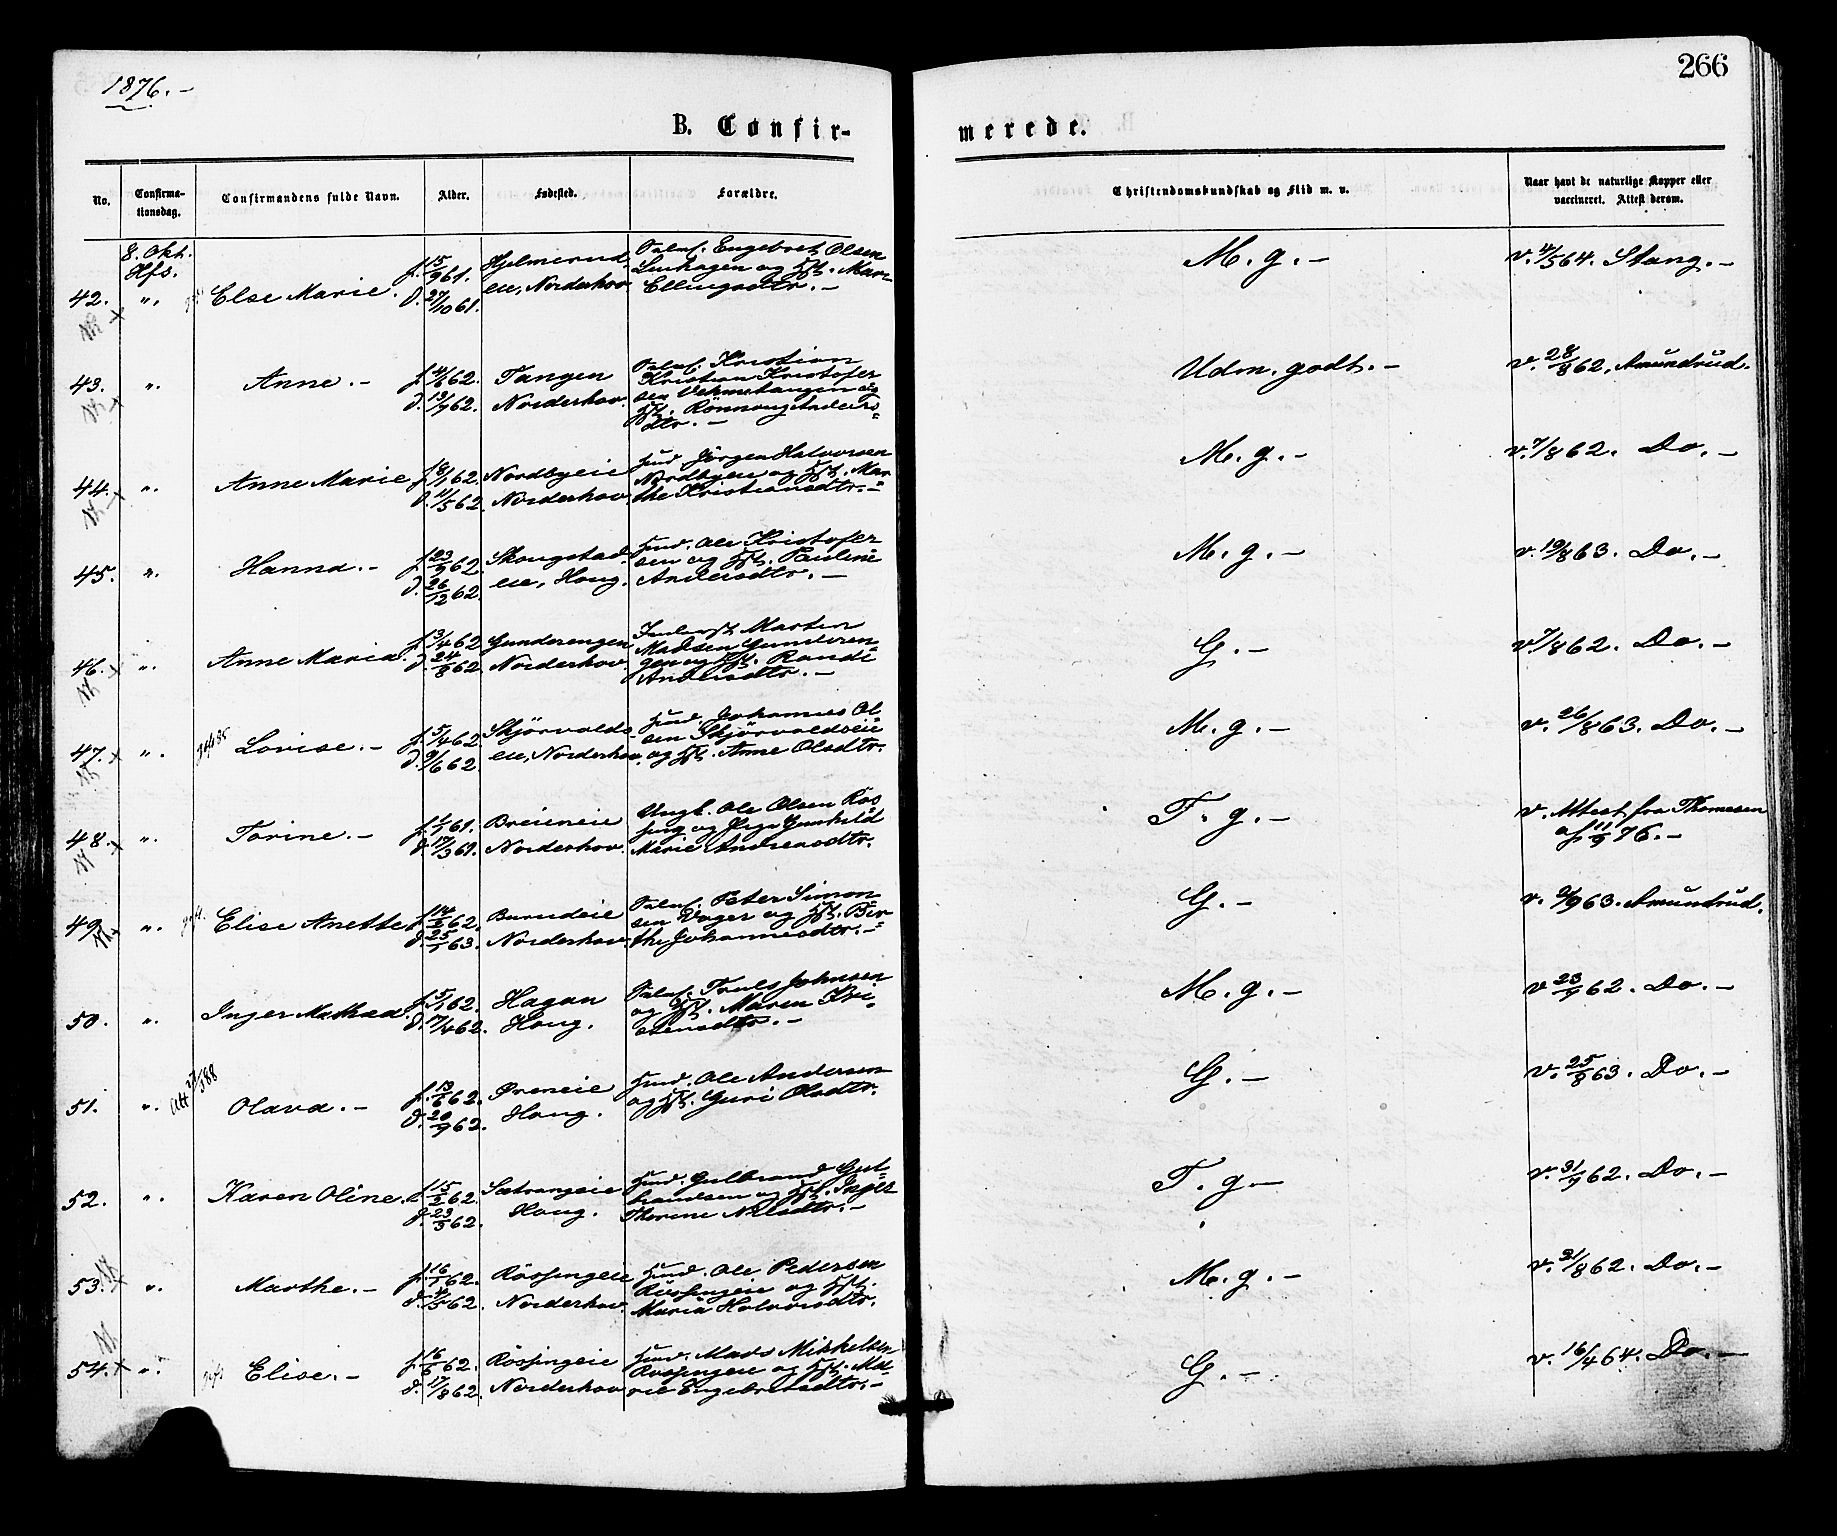 1876.-
266
B. Confir-
merede.
No.
Confirma-
tionsdag.
Confirmandens fulde Navn.
Alder.
Fødested.
Forældre.
Christendomskundskab og Flid m. v.
Naar havt de naturlige Kopper eller
vaccineret. Attest derom.
8. Okt.
Hfs.
42. " Else Marie.
f. 15/9 61.
d. 27/10 61.
Hjelmerud-
eie, Norderhov
Engebret Olsen
og Hst. Mari
Ellingsdtr.-
M. g.-
v. 4/5 64. Stang.-
43. " Anne.-
f. 4/6 62.
d. 13/9 62.
Tangen
Norderhov.
Kristian
Kristian Kristofer
sen Vekmetangen og
Hst. Rønnaug Anders
dtr.-
Udm. godt.-
v. 28/8 62. Amundrud.
44. " Anne Marie
f. 18/1 62.
d. 11/5 62.
Nordbyeie
Norderhov.
Husd. Jørgen Halvorsen
Nordbyeie og Hst. Mar-
the Kristiansdtr.-
M. g.-
v. 7/8 62. Do.-
45. " Hanna.-
f. 23/9 62.
d. 26/12 62.
Skougstad-
eie, Houg.
Husd. Ole Kristofer
sen og Hst. Pauline
Andersdtr.-
M. g.-
v. 19/8 63. Do.-
46. " Anne Maria.
f. 3/4 62
d. 24/8 62.
Gunderengen
Norderhov.
Martin
Madsen Gunderen-
gen og Hst. Randi
Andersdtr.-
G.-
v. 7/8 62. Do.-
47. " Lovise.-
f. 5/4 62.
d. 9/6 62.
Skjørvolds-
eie, Norderhov.
Husd. Johannes Ol-
sen Skjørvoldseie
og Hst. Anne Olsdtr.
M. g.-
v. 26/8 63. Do.-
48. " Torine.-
f. 1/1 61.
d. 17/3 61.
Breieneie
Norderhov.
Ungk. Ole Olsen Røs
sing og Pige Gunhild
Marie Andreasdtr.
T. g.-
v. Attest fra Thomesen
af 11/9 76.-
49. " Elise Anette
f. 14/6 62.
d. 25/1 63.
Burudeie
Norderhov.
Peter Simon-
sen Vager og Hst. Bir-
the Johannesdtr.-
G.-
v. 9/9 63. Amundrud.
50. " Inger Mathea.
f. 5/1 62.
d. 17/4 62.
Hagan
Houg.
Truls Johnsen
og Hst. Maren Kri-
stensdtr.-
M. g.-
v. 23/9 62. Do.-
51. " Olava.-
f. 13/6 62.
d. 20/9 62.
Øreneie
Houg.
Husd. Ole Andersen
og Hst. Guri Olsdtr.
G.-
v. 25/8 63. Do.-
52. " Karen Oline.
f. 15/2 62.
d. 23/3 62.
Sætrangeie
Houg.
Husd. Gulbrand Gul-
brandsen og Hst. Inger
Thorine Nilsdtr.-
T. g.-
v. 31/9 62. Do.-
53. " Marthe.-
f. 16/1 62.
d. 4/5 62.
Røssingeie
Norderhov.
Husd. Ole Pedersen
Røssingeie og Hst.
Maria Halvorsdtr.
M. g.-
v. 31/8 62. Do.-
54. " Elise.-
f. 16/6 62.
d. 17/8 62.
Røssingeie
Norderhov
Husd. Mads Mikkelsen
Røssingeie og Hst. Ma-
rie Engebretsdtr.-
G.-
v. 16/4 64. Do.-